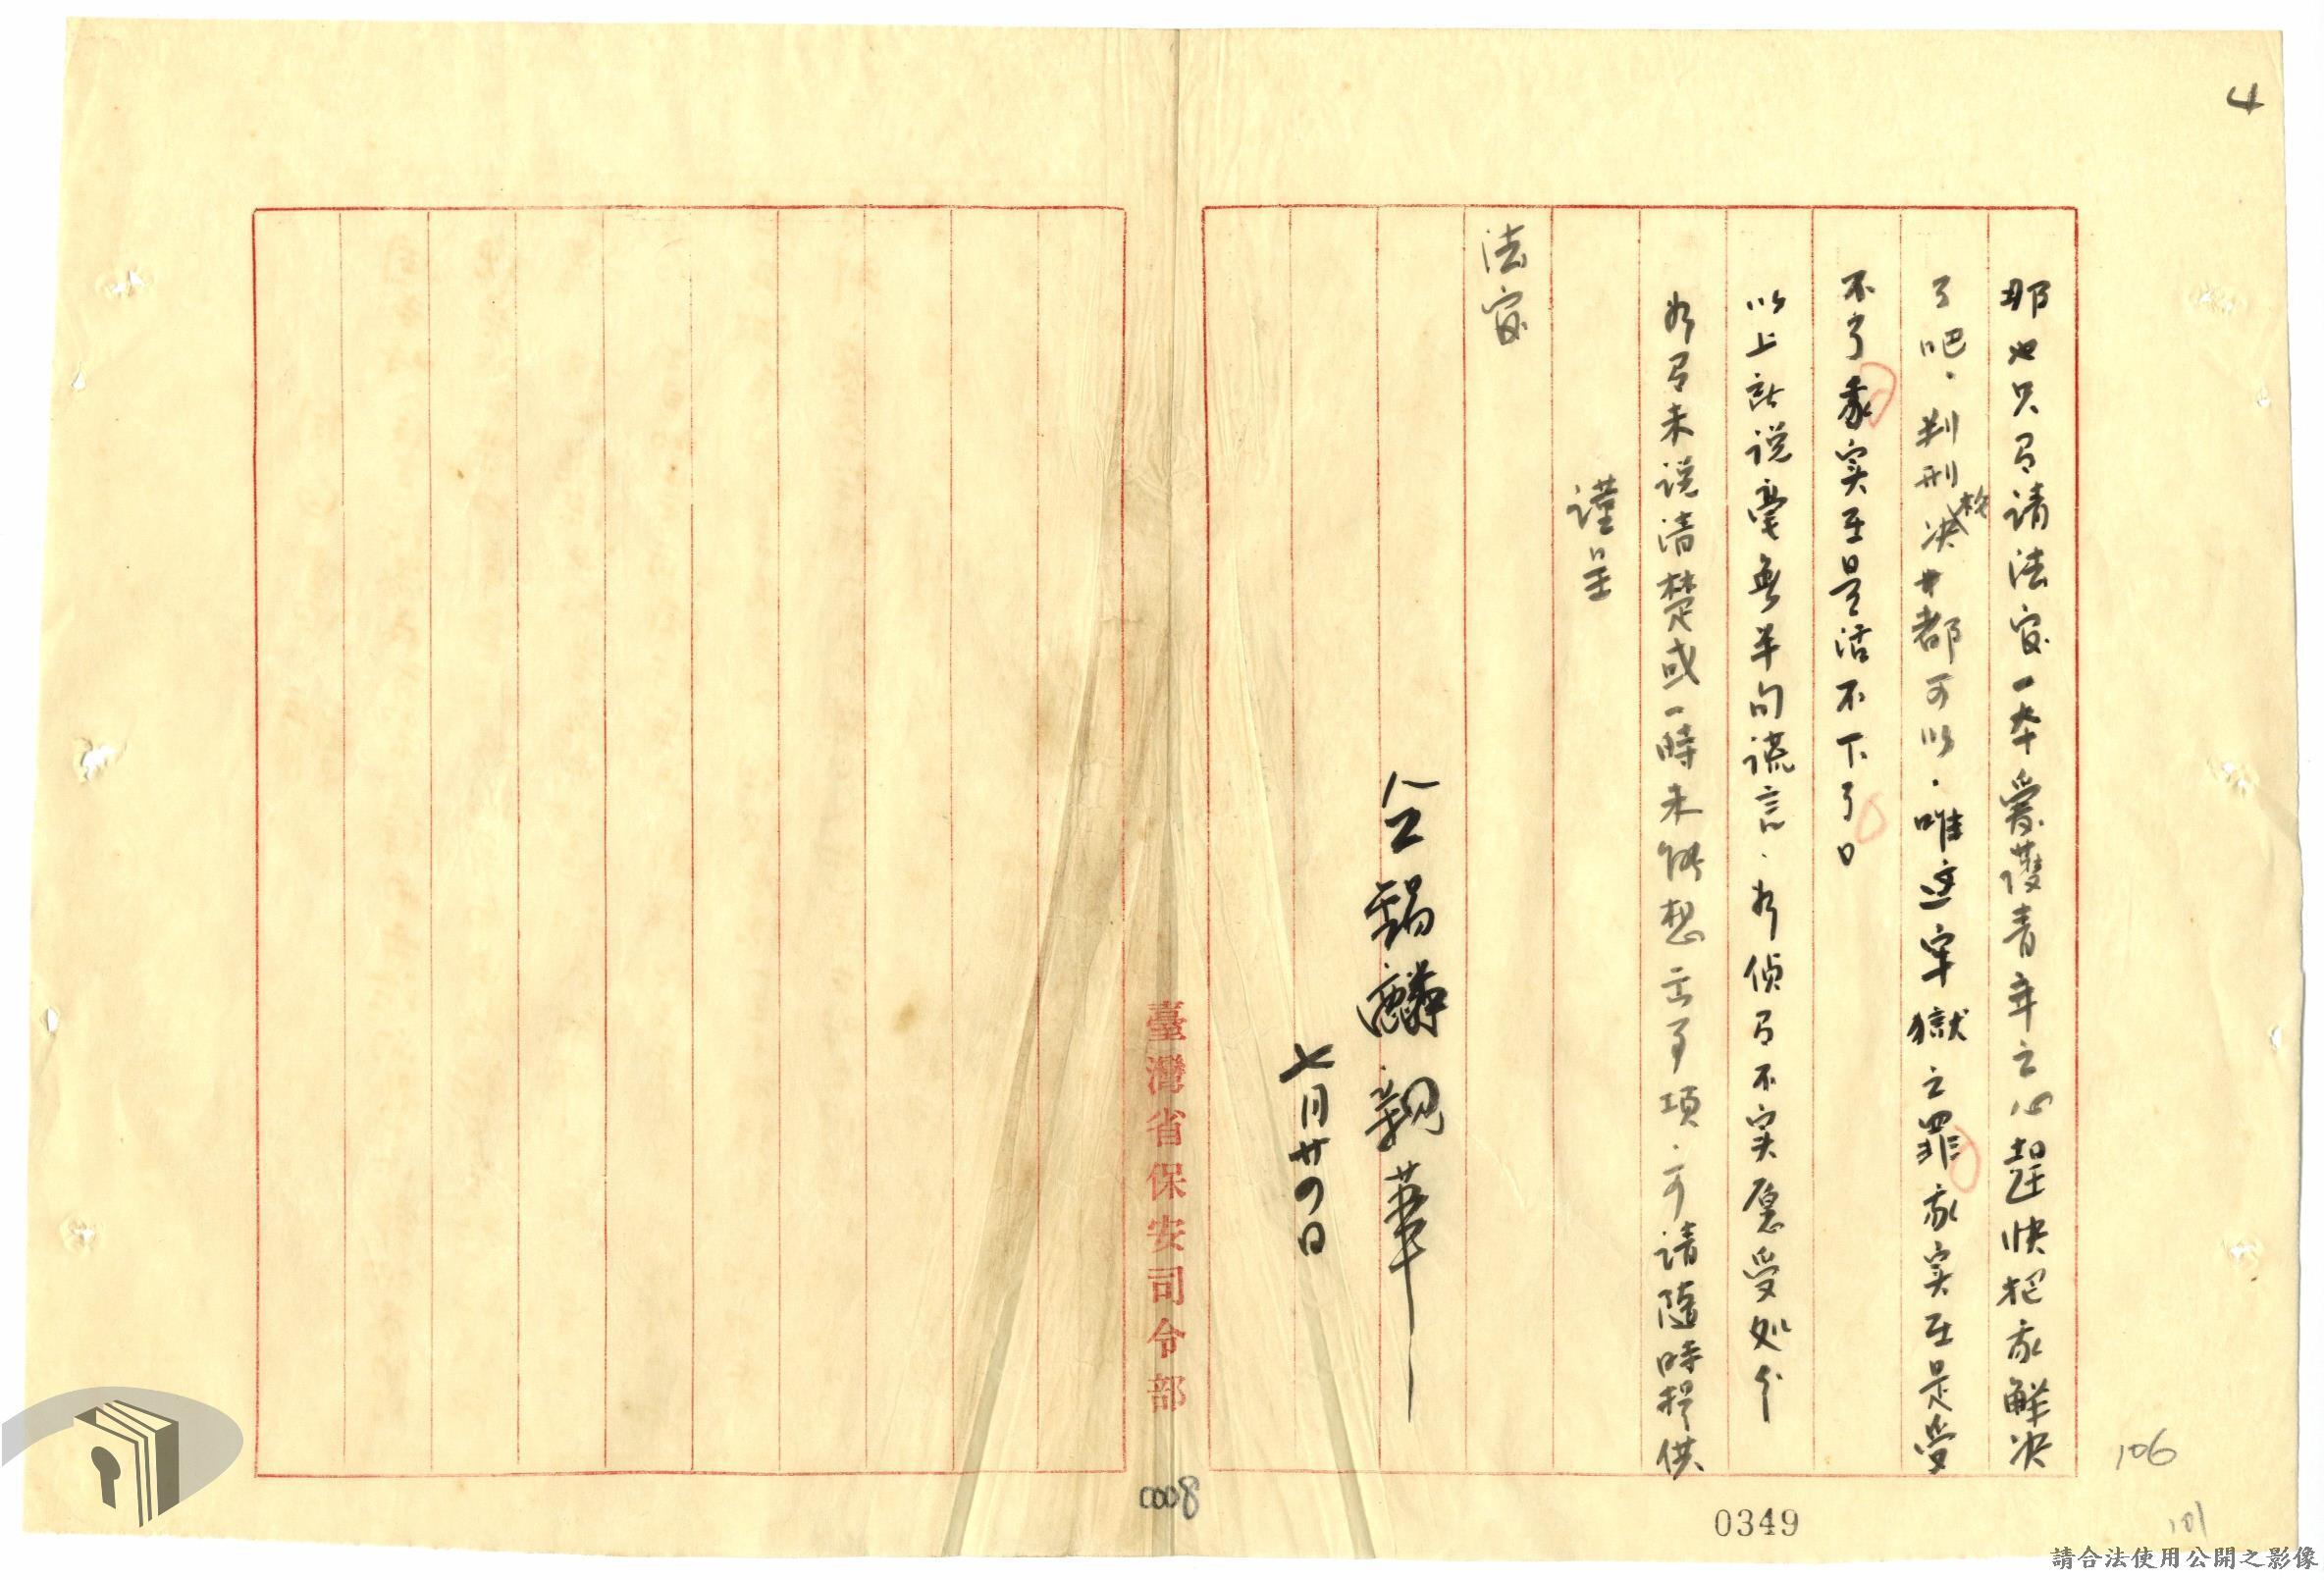 4
那也只有请法官一本爱護青年之心趕快把我解决
了吧．判刑枪决#都可以．唯这牢獄之罪我实在是受
不了我实在是活不下了。
以上所说毫無半句谎言．如侦有不实愿受处分
如有未说清楚或一時未能想立事項．可请隨時提供
谨呈
法官
錫麟親筆
七月廿四日
臺灣省保安司令部
0008
0349
106
101
請合法使用公開之影像